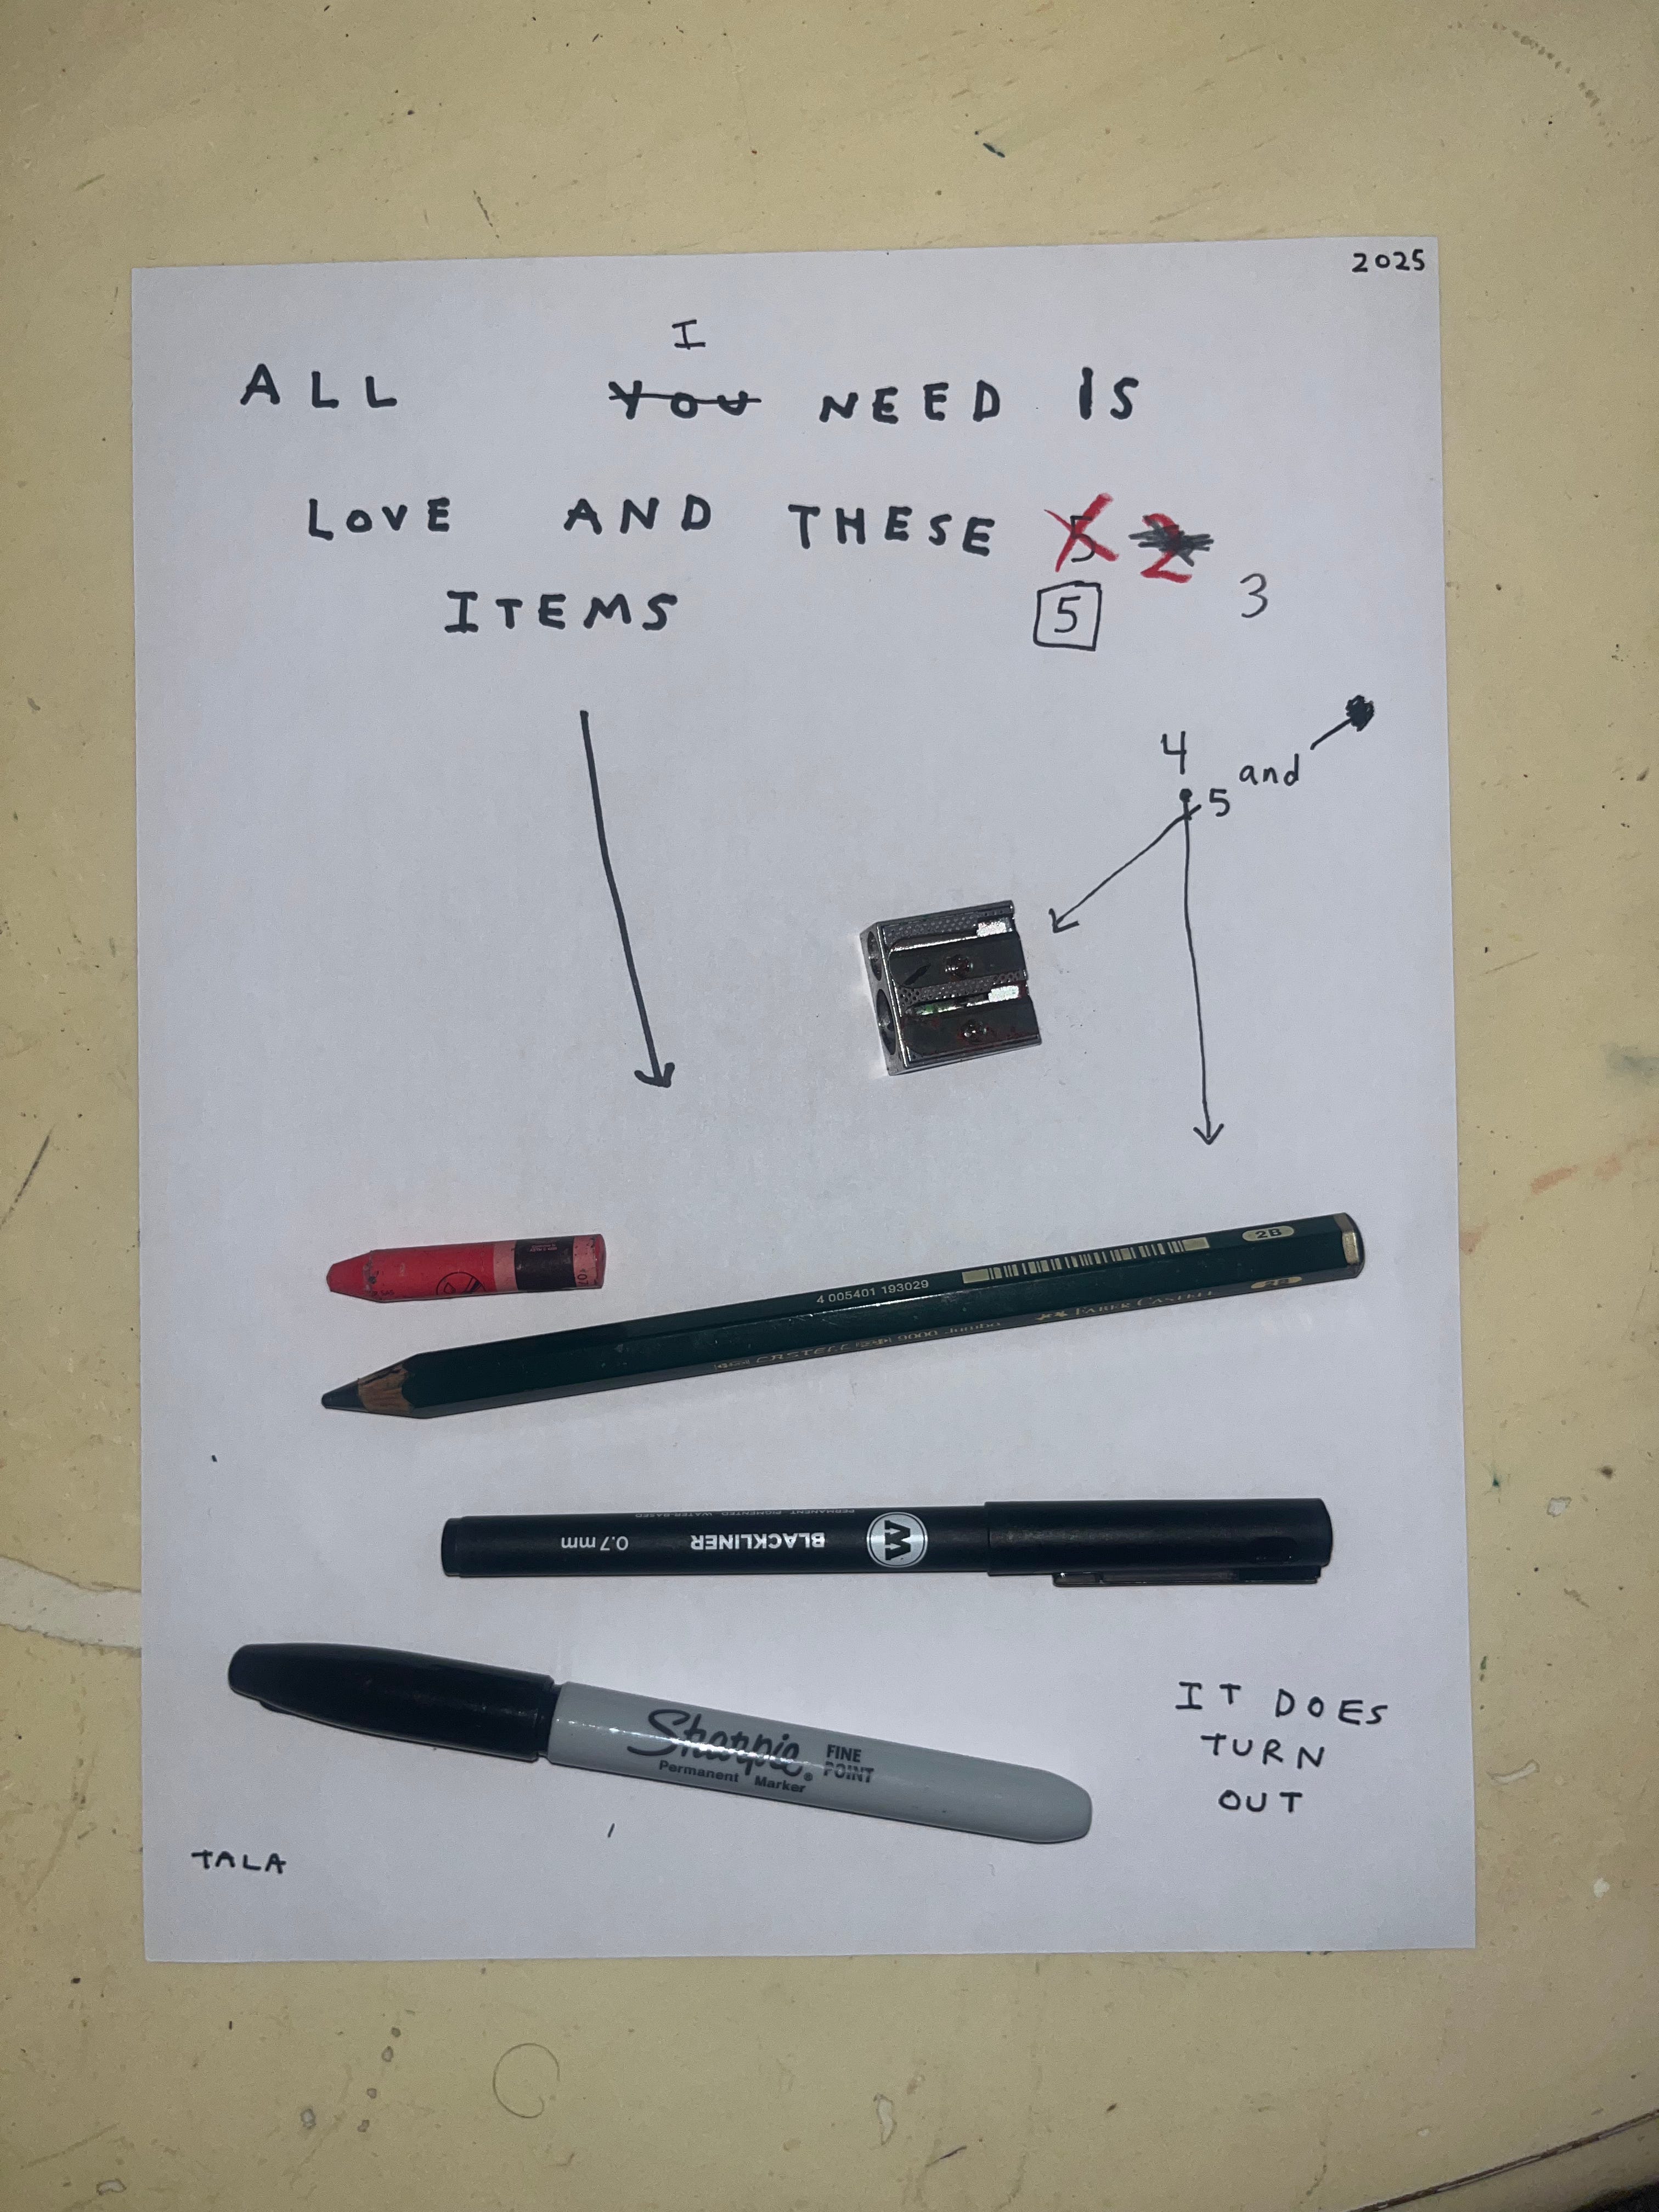 2025
I
ALL YOU NEED IS
LOVE AND THESE 5 2
ITEMS 5 3
4
and
5
4 005401 193029
2B
CASTELL 9000 Jumbo FABER-CASTELL 2B
BLACKLINER 0.7 mm
PERMANENT PIGMENTED WATER-BASED
Sharpie® FINE
POINT
Permanent Marker
IT DOES
TURN
OUT
TALA